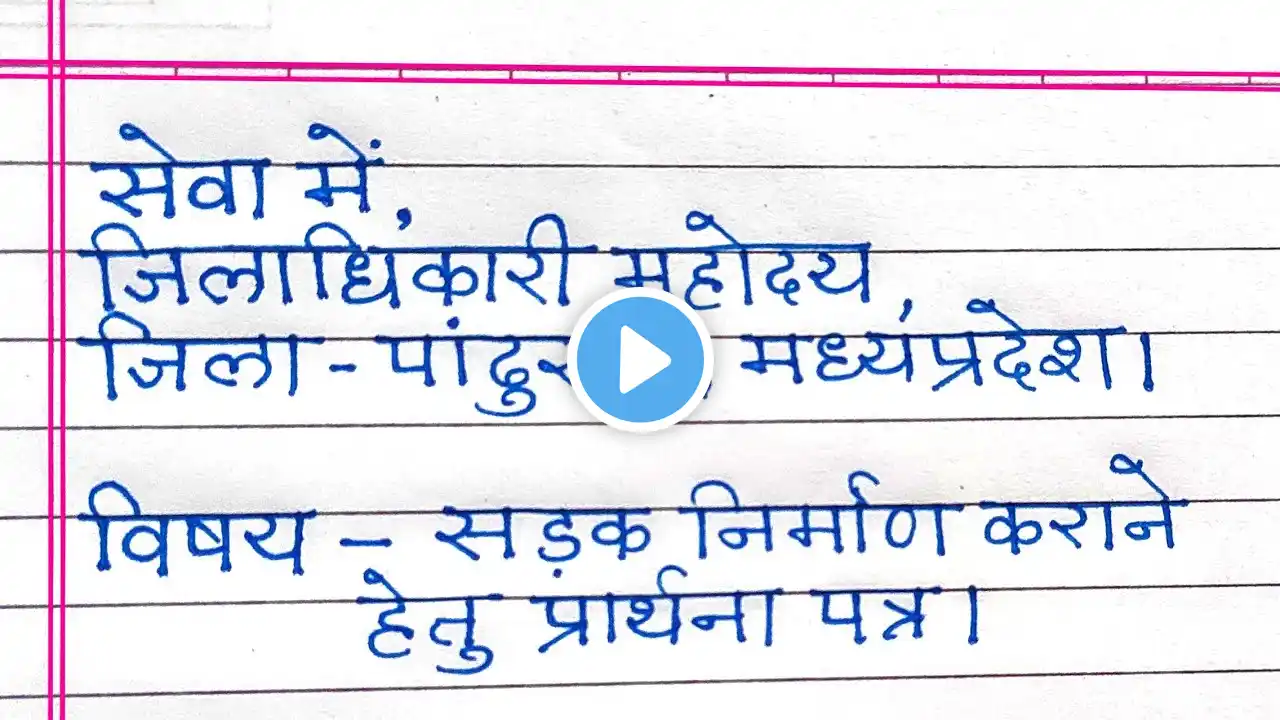 सेवा में,
जिलाधिकारी महोदय,
जिला - मध्यप्रदेश।
विषय - सड़क निर्माण कराने
हेतु प्रार्थना पत्र।